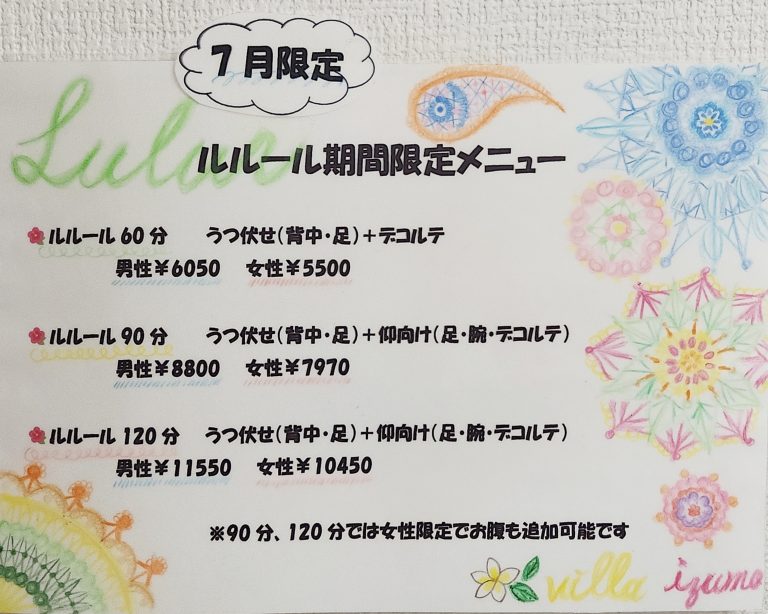 7月限定
Lulur
ルルール期間限定メニュー
ルルール60分　うつ伏せ(背中・足)+デコルテ
男性¥6050　女性¥5500
ルルール90分　うつ伏せ(背中・足)+仰向け(足・腕・デコルテ)
男性¥8800　女性¥7970
ルルール120分　うつ伏せ(背中・足)+仰向け(足・腕・デコルテ)
男性¥11550　女性¥10450
※90分、120分では女性限定でお腹も追加可能です
villa izumo